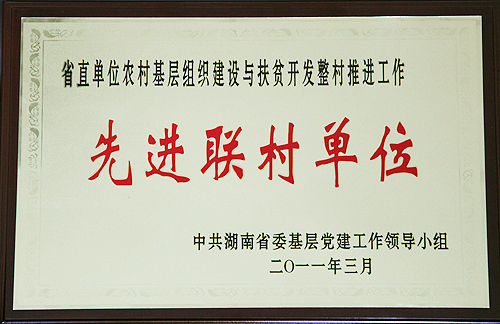 省直单位农村基层组织建设与扶贫开发整村推进工作
先进联村单位
中共湖南省委基层党建工作领导小组
二〇一一年三月